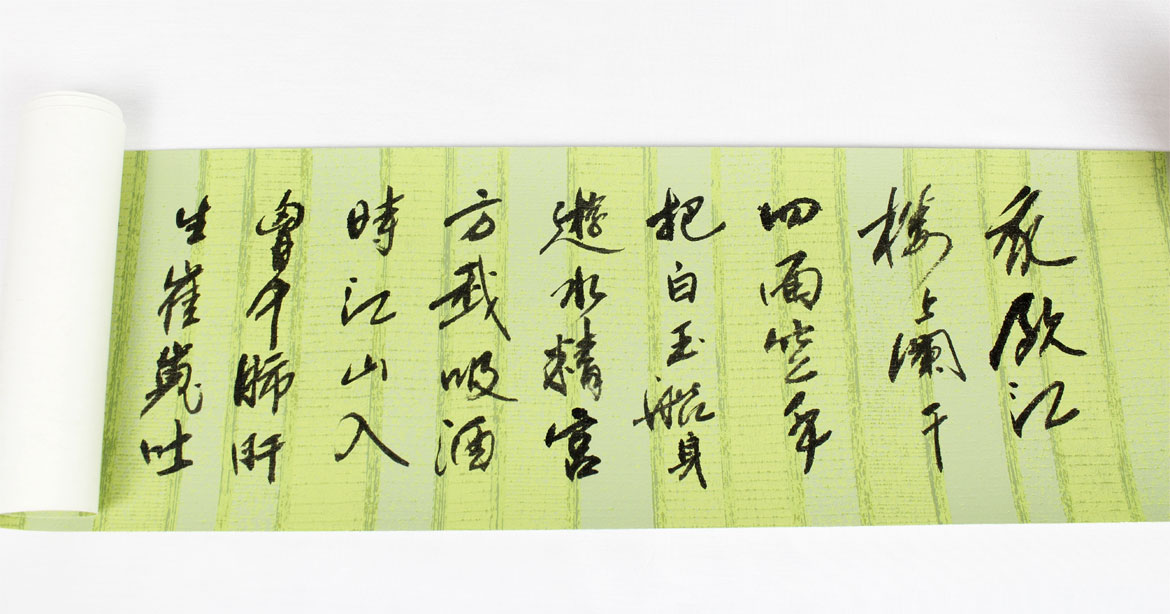 我飲江
樓上瀾干
四面空手
把白玉船身
遊水精宮
方我吸酒
時江山入
胷中肺肝
生崔嵬吐